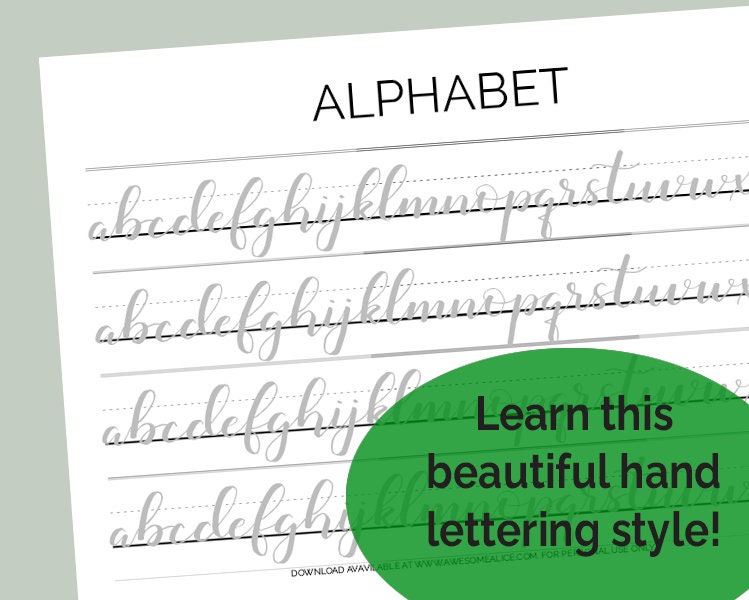 ALPHABET
abcdefghijklmnopqrstuvwx
abcdefghijklmnopqrstuvwx
abcdefghijklmnopqrstuvw
abcdefghijklmnopqrstuvw
Learn this
beautiful hand
lettering style!
DOWNLOAD AVAVILABLE AT WWW.AWESOMEALICE.COM. FOR PERSONAL USE ONLY.